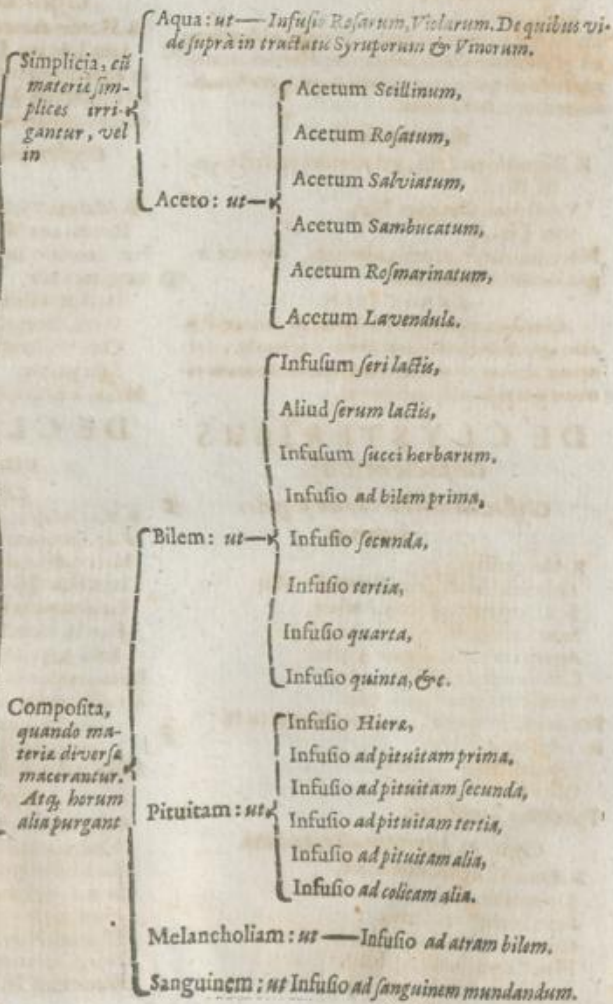 Aqua: ut — Infusio Rosarum, Violarum. De quibus vi-
de suprà in tractatu Syruporum & Vinorum.
Simplicia, cū
materiæ sim-
plices irri-
gantur, vel
in
Aceto: ut
Acetum Scillinum,
Acetum Rosatum,
Acetum Salviatum,
Acetum Sambucatum,
Acetum Rosmarinatum,
Acetum Lavendulæ.
Composita,
quando ma-
teriæ diversæ
macerantur.
Atq; horum
alia purgant
Bilem: ut
Infusum seri lactis,
Aliud serum lactis,
Infusum succi herbarum,
Infusio ad bilem prima,
Infusio secunda,
Infusio tertia,
Infusio quarta,
Infusio quinta, &c.
Pituitam: ut
Infusio Hieræ,
Infusio ad pituitam prima,
Infusio ad pituitam secunda,
Infusio ad pituitam tertia,
Infusio ad pituitam alia,
Infusio ad colicam alia.
Melancholiam: ut — Infusio ad atram bilem.
Sanguinem: ut Infusio ad sanguinem mundandum.